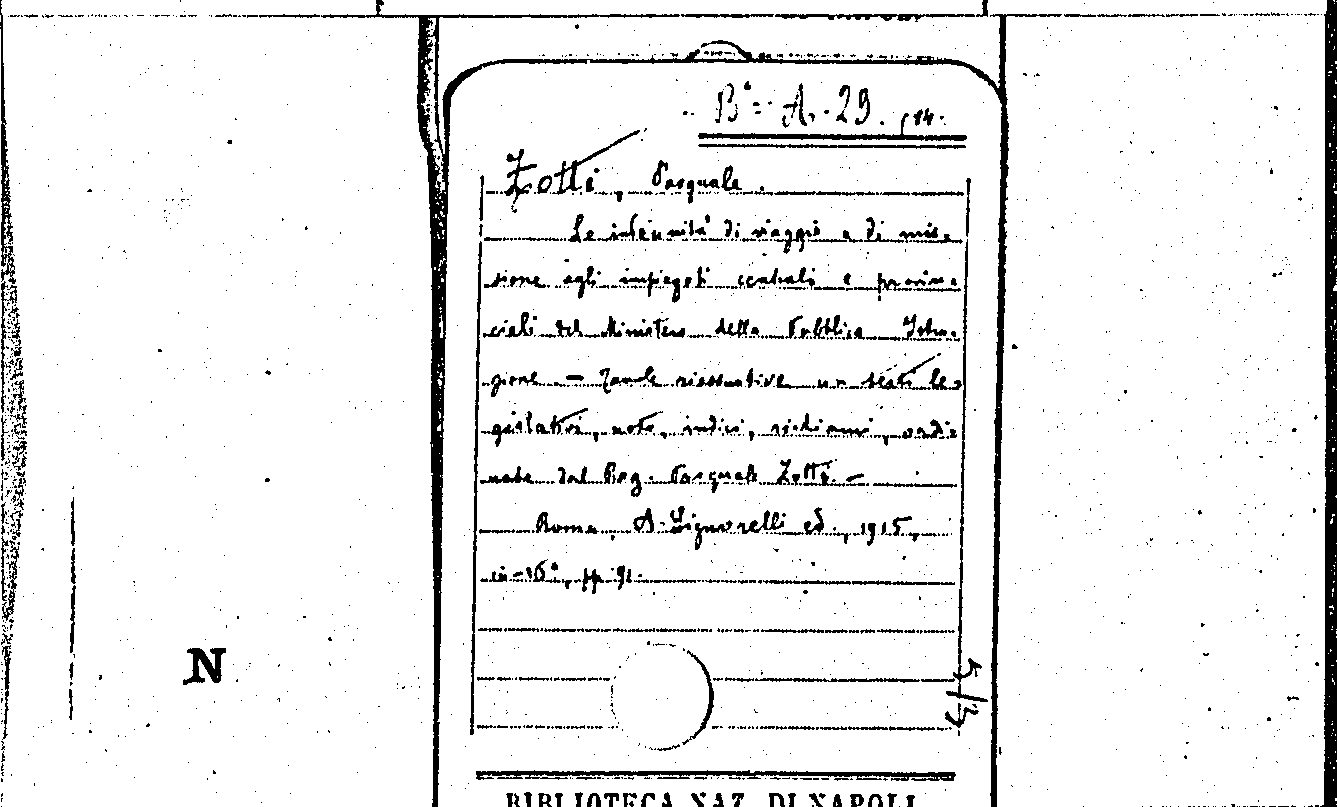 Bª= A. 29. (14.
Zotti, Pasquale.
Le indennità di viaggio e di mis=
sione agli impiegati centrali e provin=
ciali del Ministero della Pubblica Istru=
zione. — Tavole riassuntive con testi le=
gislativi, note, indici, richiami, ordi=
nate dal Rag. Pasquale Zotti. —
Roma, A. Signorelli ed., 1915,
in-16°, pp. 91.
5/3
N
BIBLIOTECA NAZ. DI NAPOLI